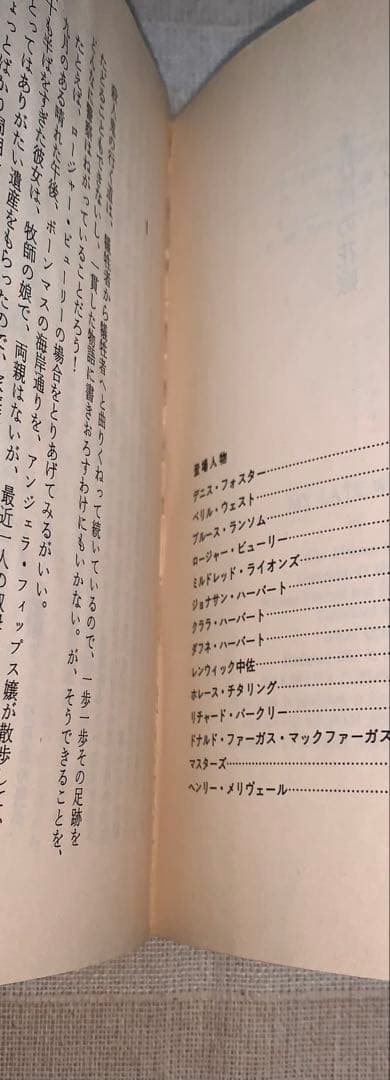 登場人物
デニス・フォスター……………………
ベリル・ウェスト……………………
ブルース・ランソム……………………
ロージャー・ビューリー……………………
ミルドレッド・ライオンズ……………………
ジョナサン・ハーバート……………………
クララ・ハーバート……………………
ダフネ・ハーバート……………………
レンウィック中佐……………………
ホレース・チタリング……………………
リチャード・バークリー……………………
ドナルド・ファーガス・マックファーガス
マスターズ……………………
ヘンリー・メリヴェール……………………
1
から犠牲者へと曲りくねって続いているので、一歩一歩その足跡を
たどることもできないし、一貫した物語に書きおろすわけにもいかない。が、そうできることを、
どんなに警察はねがっていることだろう！
たとえば、ロージャー・ビューリーの場合をとりあげてみるがいい。
六月のある晴れた午後、ボーンマスの海岸通りを、アンジェラ・フィップス嬢が散歩して
十も半ばをすぎた彼女は、牧師の娘で、両親はないが、最近一人の叔母
とってはありがたい遺産をもらったので、